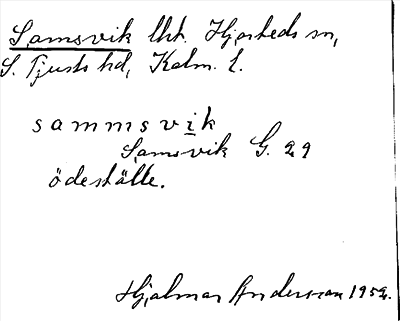 Samsvik lht. Hjorteds sn,
S. Tjusts hd, Kalm. l.
sammsvik
Samsvik G. 29
ödeställe.
Hjalmar Andersson 1952.